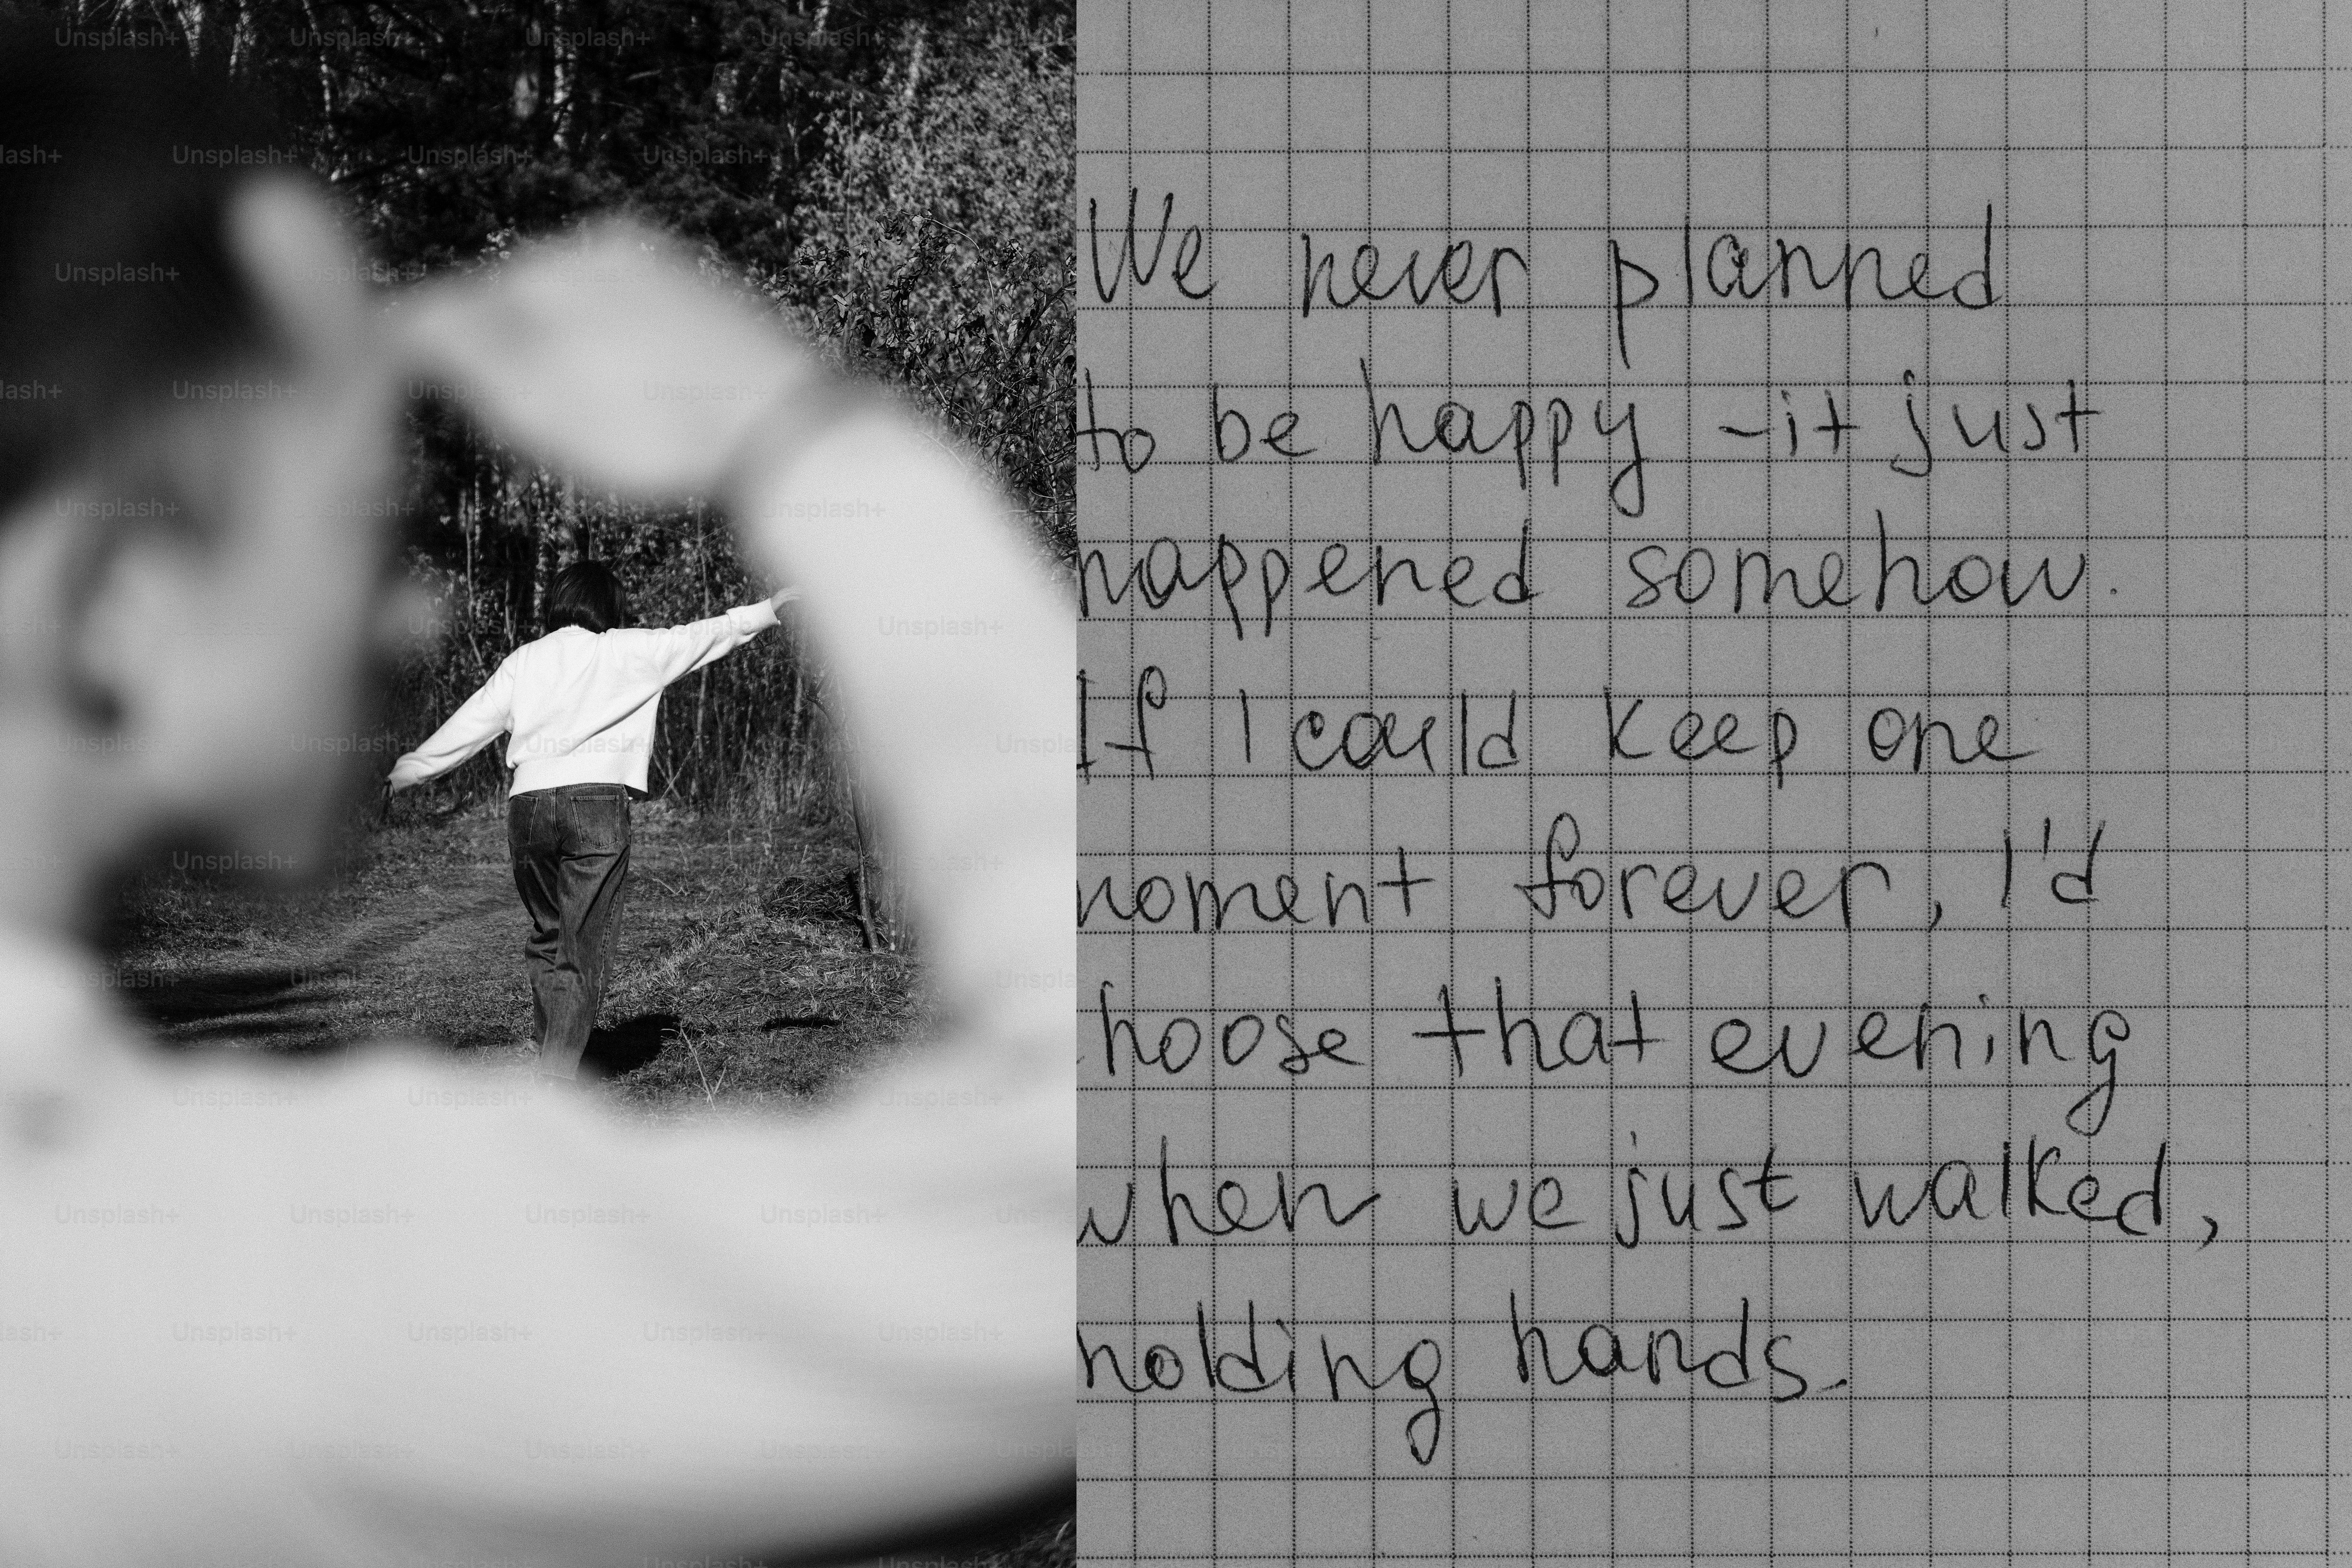 We never planned
to be happy - it just
happened somehow.
If I could keep one
moment forever, I'd
choose that evening
when we just walked,
holding hands.